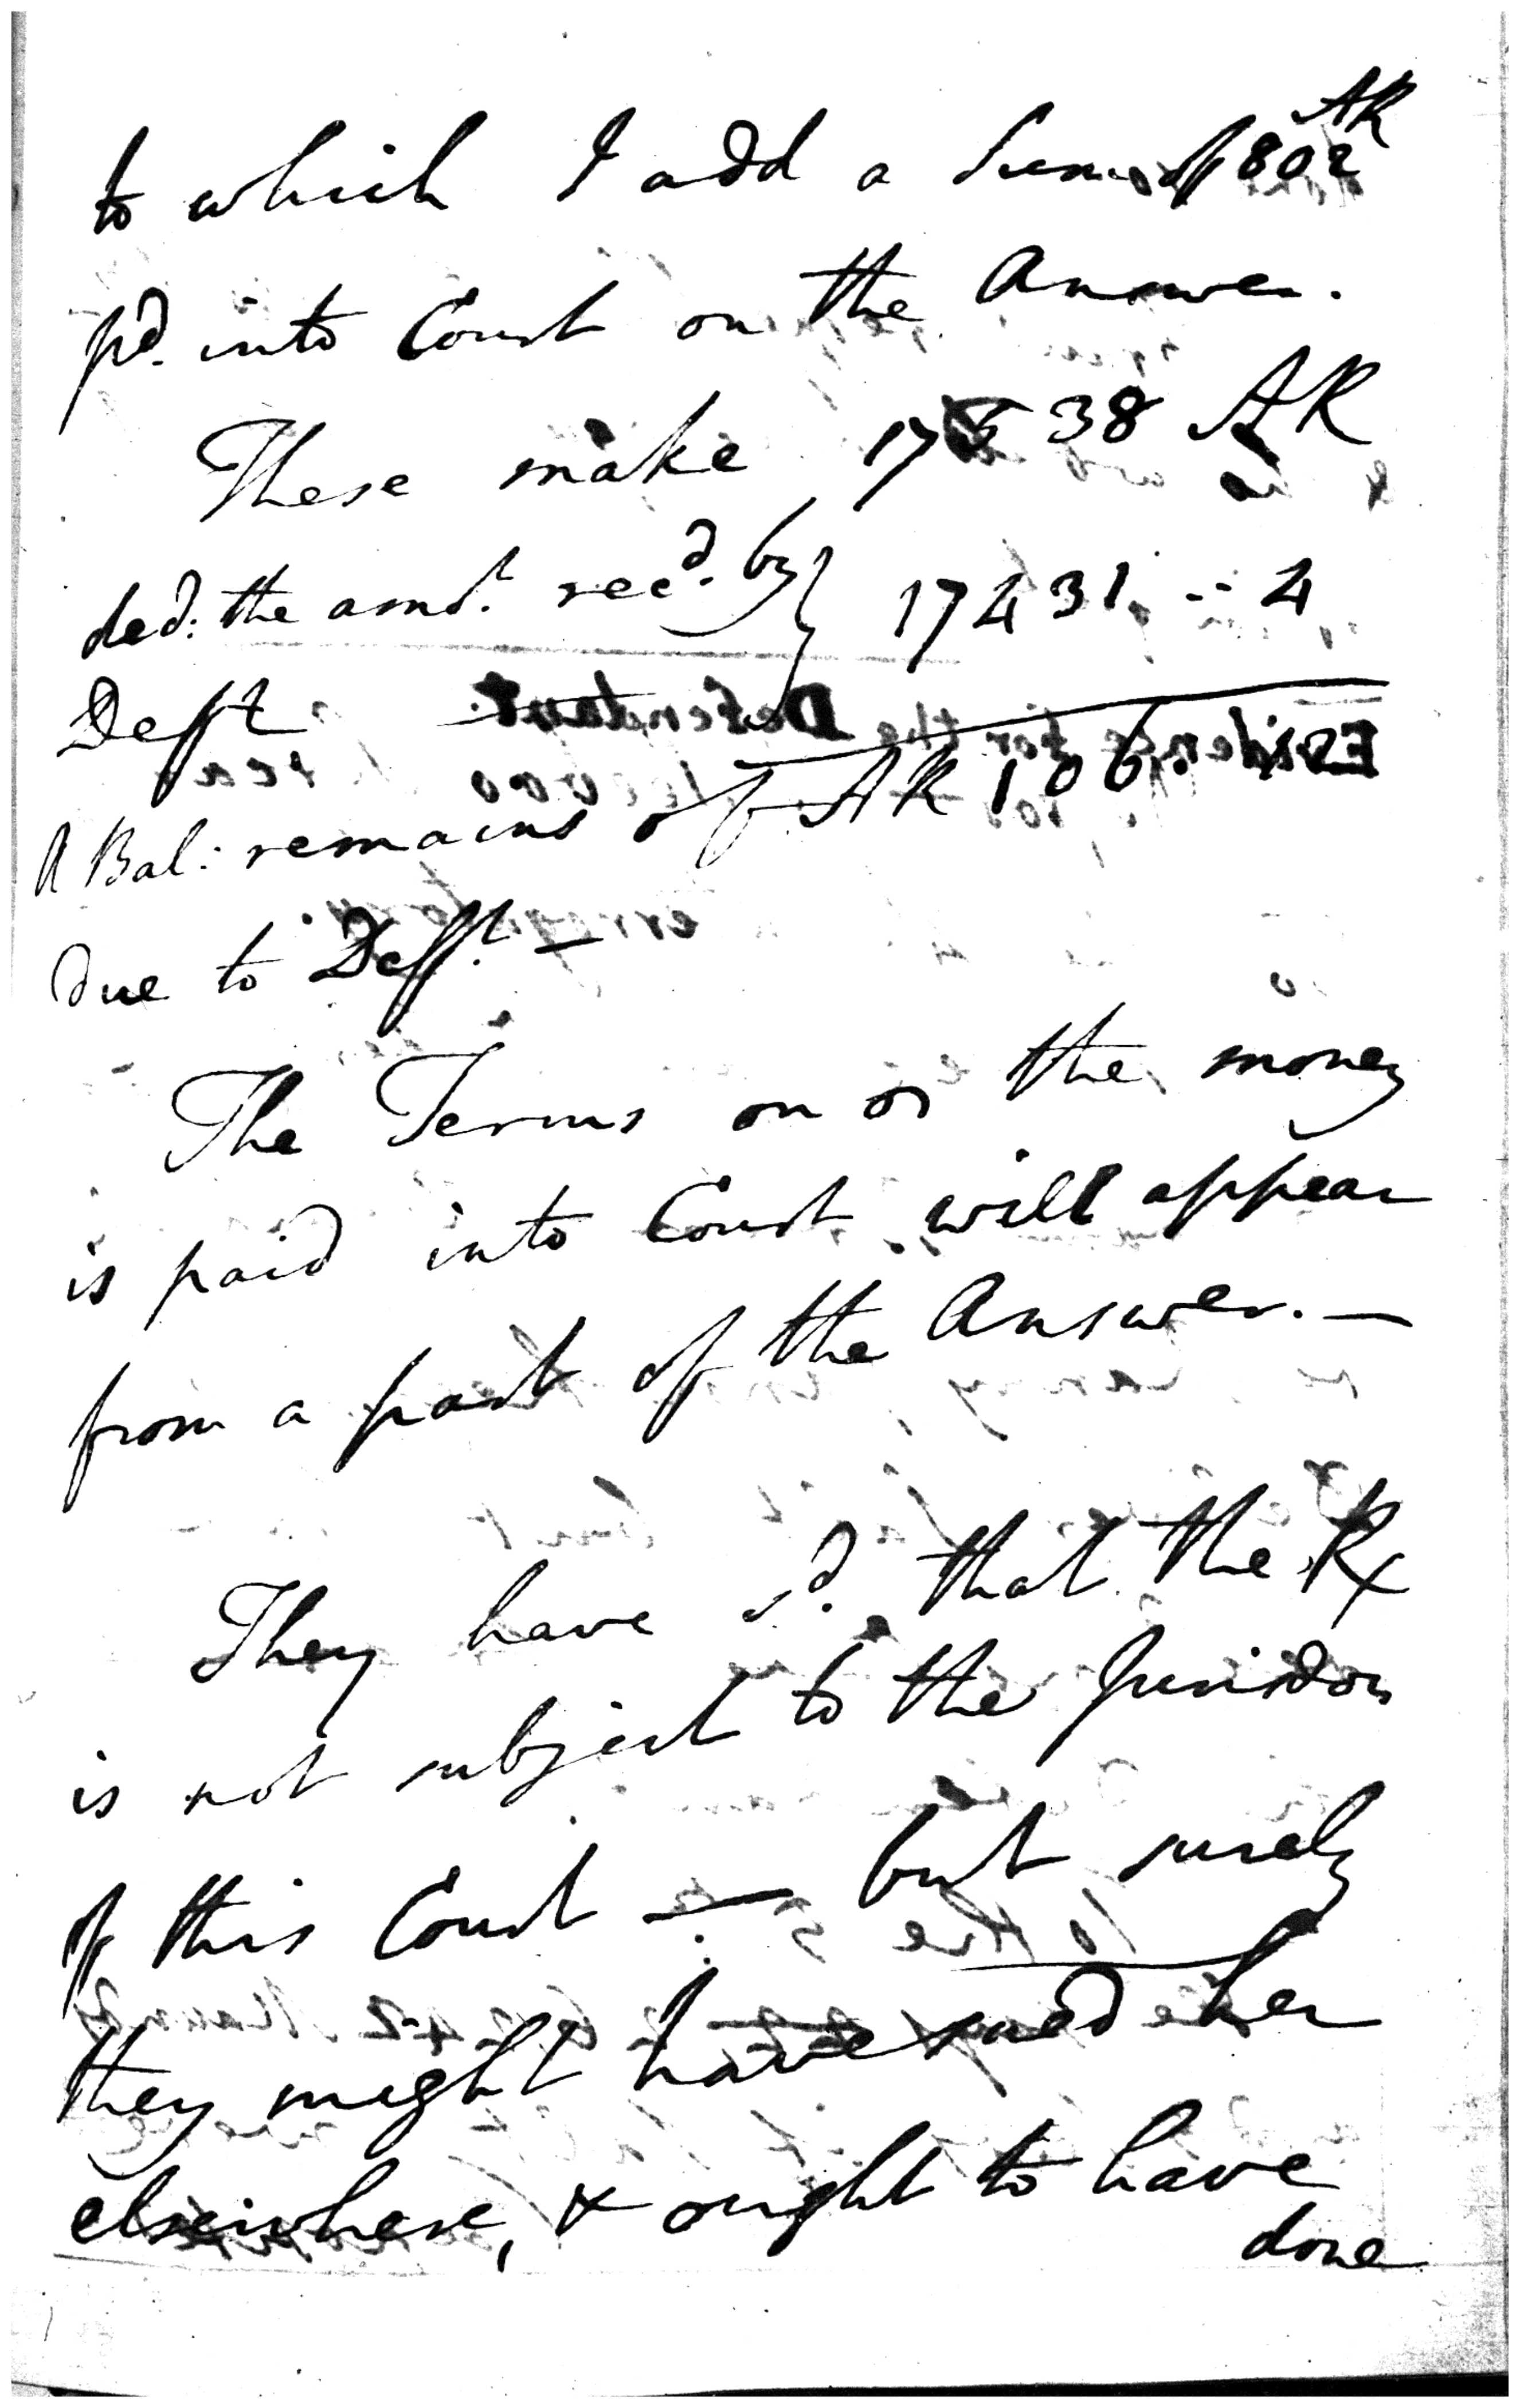 to which I add a Sum of 802 AR
pd. into Court on the Answer.
These make 17538 AR
ded: the amt. recd. by } 17431 .. 4
Defft
A Bal: remains of AR 106. 12
due to Defft. —
The Terms on wh the money
is paid into Court will appear
from a part of the Answer. —
They have sd. that the Rx
is not subject to the Jurisdon
of this Court — but surely
they might have sued her
elsewhere, & ought to have
done